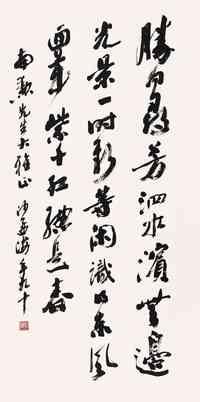 勝日尋芳泗水濱無邊
光景一時新等閑識得東風
面萬紫千紅總是春
南薰先生大雅正 沙孟海年九十